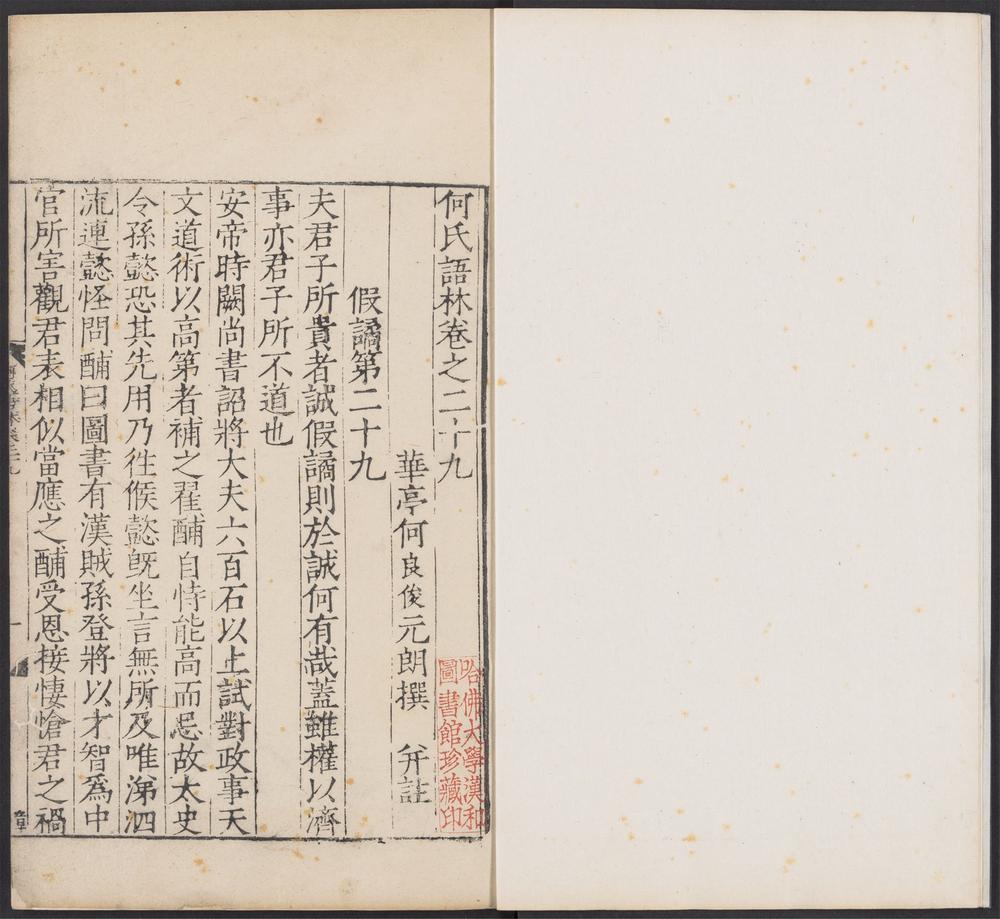 何氏語林卷之二十九
華亭何良俊元朗撰 并註
假譎第二十九
夫君子所貴者誠假譎則於誠何有哉蓋雖權以濟
事亦君子所不道也
安帝時闕尚書詔將大夫六百石以上試對政事天
文道術以高第者補之翟酺自恃能高而忌故太史
令孫懿恐其先用乃徃候懿旣坐言無所及唯涕泗
流連懿怪問酺曰圖書有漢賊孫登將以才智爲中
官所害觀君表相似當應之酺受恩接悽愴君之禍
哈佛大學漢和
圖書館珍藏印
一
章